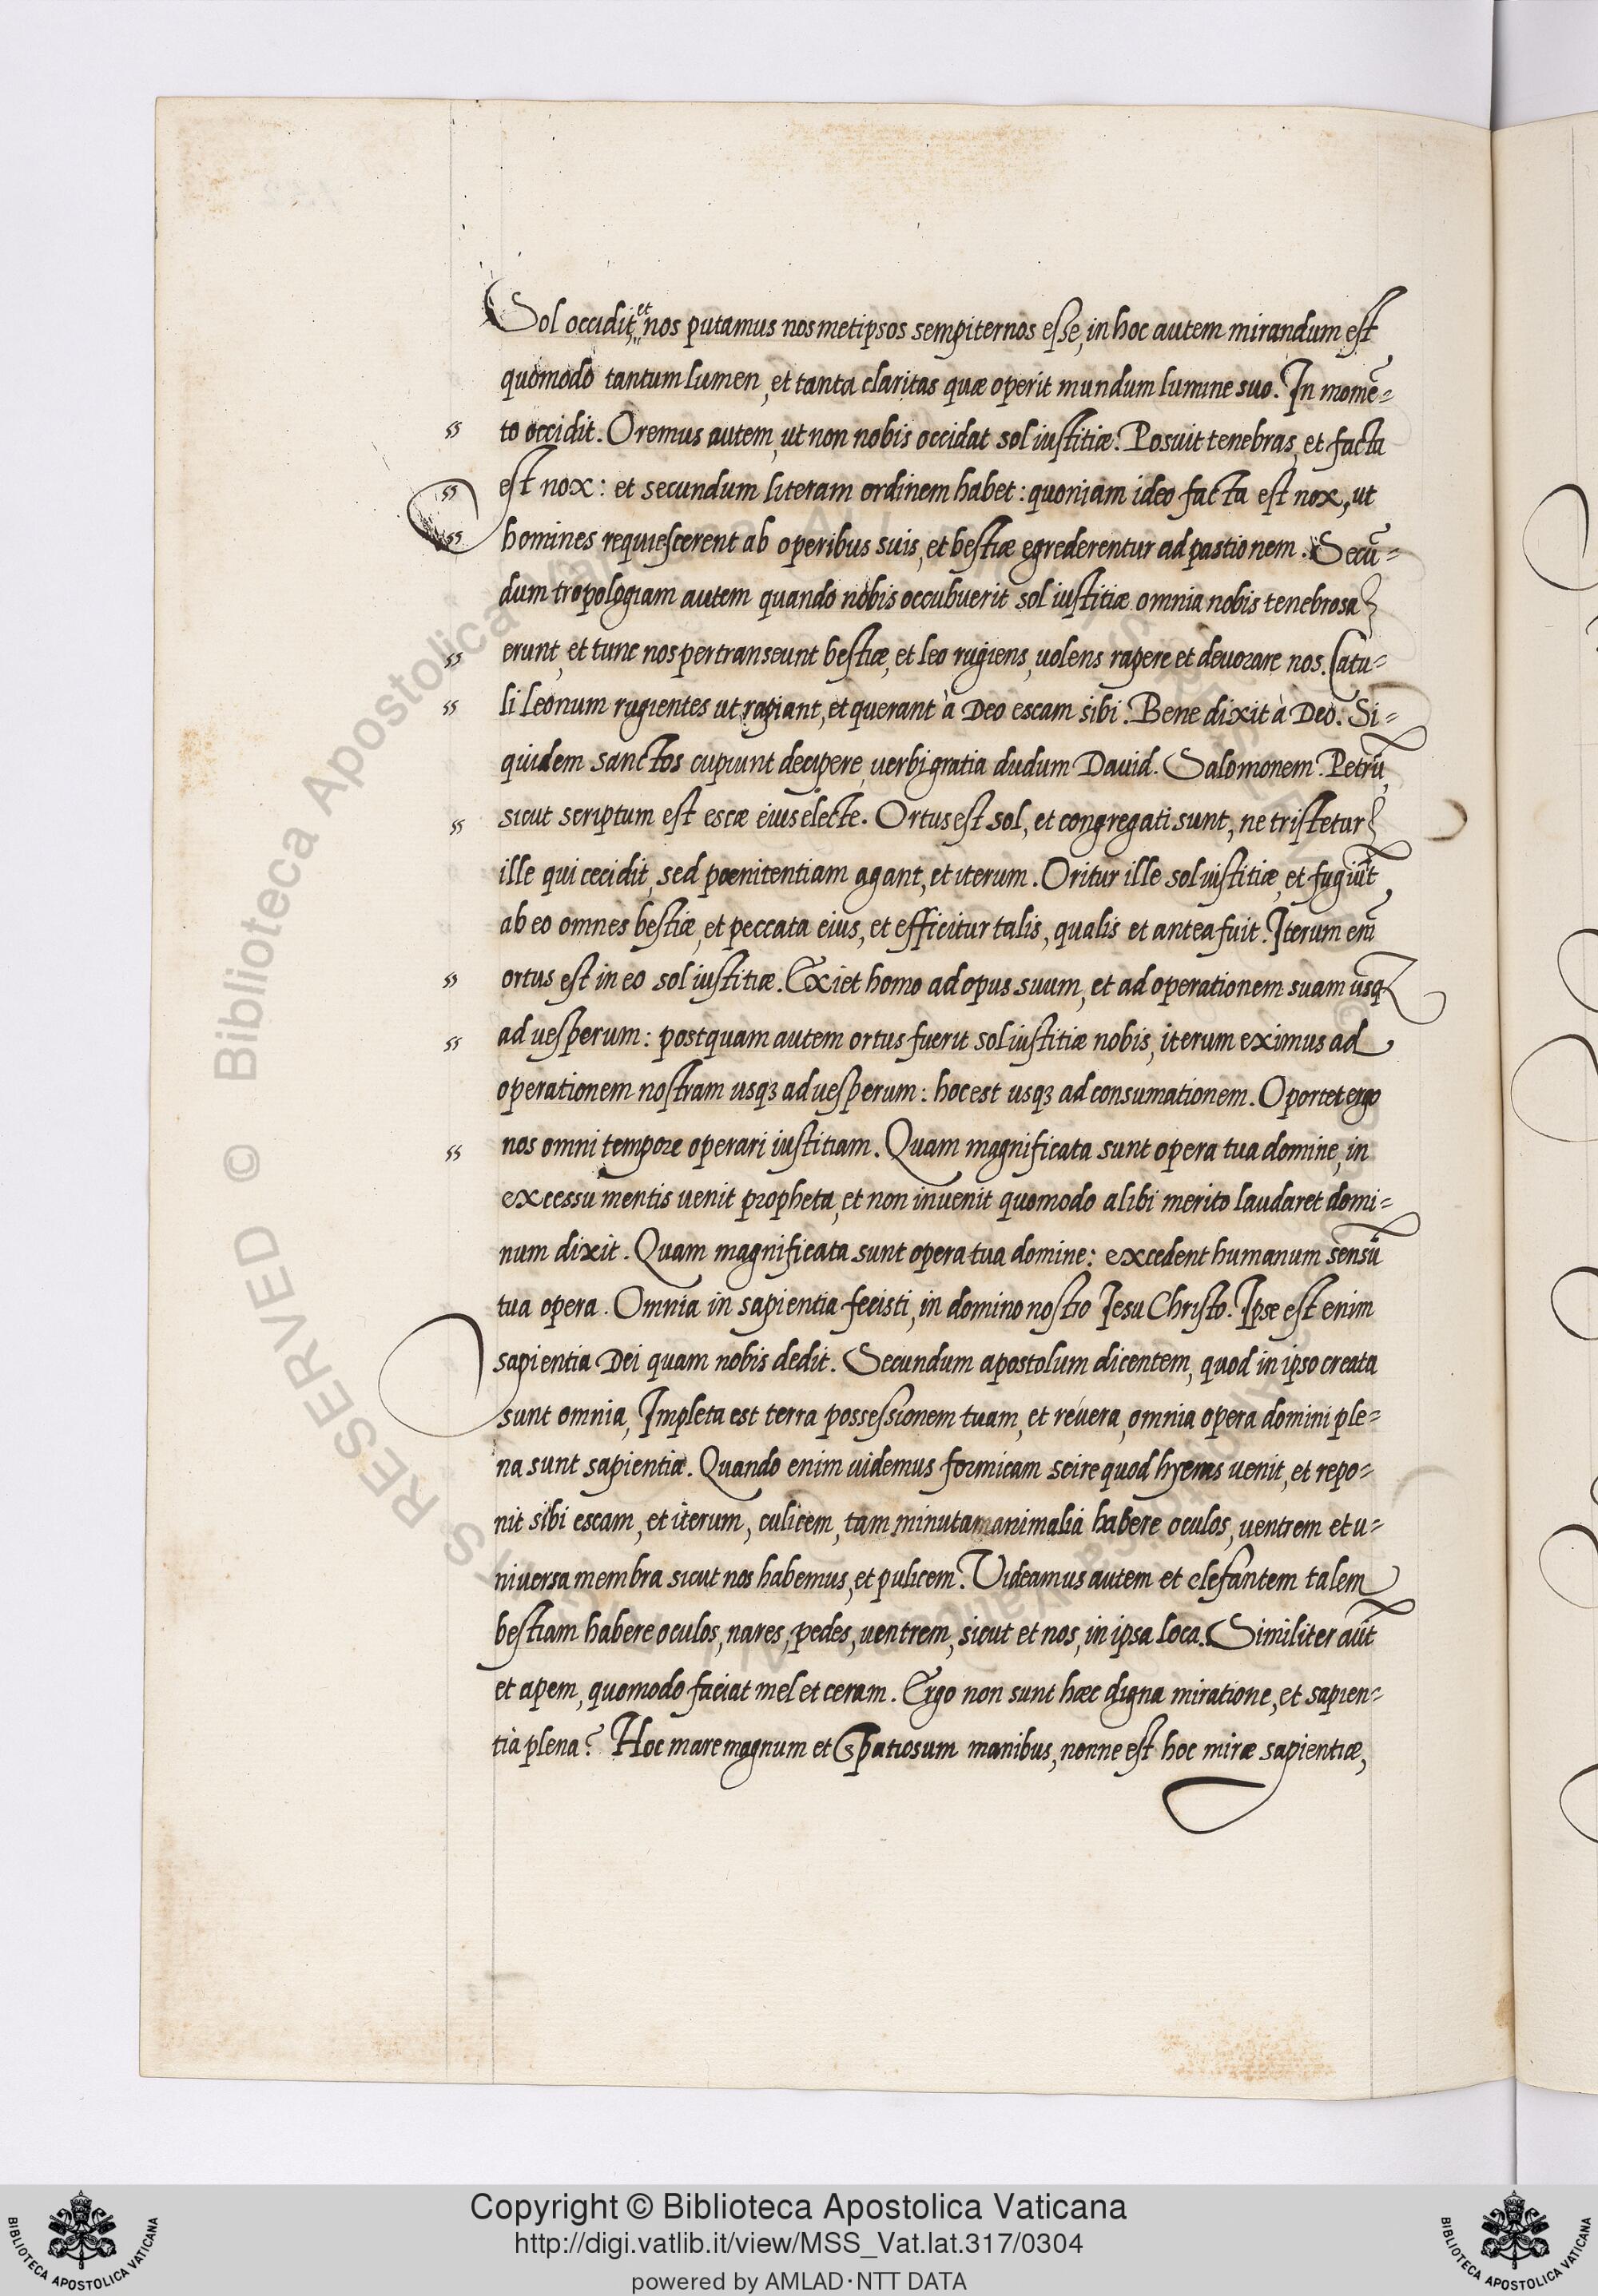 Sol occidit, et nos putamus nosmetipsos sempiternos esse, in hoc autem mirandum est
quomodo tantum lumen, et tanta claritas quæ operit mundum lumine suo. In momē-
to occidit. Oremus autem, ut non nobis occidat sol iustitiæ. Posuit tenebras, et facta
est nox: et secundum literam ordinem habet: quoniam ideo facta est nox, ut
homines requiescerent ab operibus suis, et bestiæ egrederentur ad pastionem. Secū-
dum tropologiam autem quando nobis occubuerit sol iustitiæ omnia nobis tenebrosa
erunt, et tunc nos pertranseunt bestiæ, et leo rugiens, uolens rapere et devorare nos. Catu-
li leonum rugientes ut rapiant, et querant à Deo escam sibi. Bene dixit à Deo. Si-
quidem sanctos cupiunt decipere, verbi gratia dudum David. Salomonem. Petrū,
sicut scriptum est escæ eius electe. Ortus est sol, et congregati sunt, ne tristetur
ille qui cecidit, sed pœnitentiam agant, et iterum. Oritur ille sol iustitiæ, et fugiūt
ab eo omnes bestiæ, et peccata eius, et efficitur talis, qualis et antea fuit. Iterum em̄
ortus est in eo sol iustitiæ. Exiet homo ad opus suum, et ad operationem suam usq
ad uesperum: postquam autem ortus fuerit sol iustitiæ nobis, iterum eximus ad
operationem nostram usqꝫ ad uesperum: hoc est usqꝫ ad consumationem. Oportet ergo
nos omni tempore operari iustitiam. Quam magnificata sunt opera tua domine, in
excessu mentis uenit propheta, et non invenit quomodo alibi merito laudaret domi-
num dixit. Quam magnificata sunt opera tua domine: excedent humanum sensū
tua opera. Omnia in sapientia fecisti, in domino nostro Iesu Christo. Ipse est enim
sapientia Dei quam nobis dedit. Secundum apostolum dicentem, quod in ipso creata
sunt omnia, Impleta est terra possessionem tuam, et révera, omnia opera domini ple-
na sunt sapientiæ. Quando enim uidemus formicam scire quod hyems uenit, et repo-
nit sibi escam, et iterum, culicem, tam minutam animalia habere oculos, uentrem et u-
niversa membra sicut nos habemus, et pulicem. Videamus autem et elefantem talem
bestiam habere oculos, nares, pedes, uentrem, sicut et nos, in ipsa loca. Similiter aūt
et apem, quomodo faciat mel et ceram. Ergo non sunt hæc digna miratione, et sapien-
tià plena? Hoc mare magnum et Spatiosum manibus, nonne est hoc miræ sapientiæ,
Copyright © Biblioteca Apostolica Vaticana
http://digi.vatlib.it/view/MSS_Vat.lat.317/0304
powered by AMLAD·NTT DATA